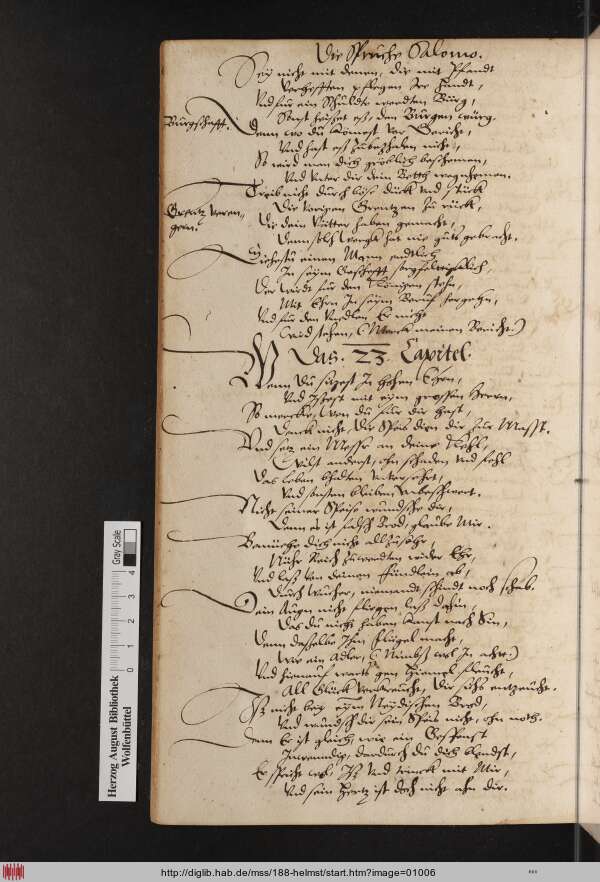 Die Sprüche Salomo.
Sey nicht mit denen, die mit Pfandt
Verhefften pflegen Ire Handt,
Und für ein Schuldt werdten Bürg,
Sonst heisset es, den Bürgen würg.
Bürgschafft.
Dann wo du kömest vor Gericht,
Und hast es zubezhalen nicht,
So wird man dich gröblich beschemen,
Und Unter dir dein Betth wegnhemen.
Treib nicht durch böse dück und stück
Die vorigen Grentzen zu rück,
Grentz veren-
gern.
Die dein Vätter haben gemacht,
Dann solch hat nie guts gebracht.
Siehestu einen Mann endtlich
In seym Geschefft
Der wirdt für den Königen stehn,
Mit Ehrn In seym Beruf hergehn,
Und für den Unedlen Er nicht
wird stehen, (Merck meinen Bericht.)
Das. 23. Capitel.
Wenn Du sitzest In hohen Ehrn,
Und Issest mit eym grossen Herrn,
So mercke, wen du für dir hast,
Denck nicht, die Speis dien dir zur Mast.
Und setz ein Messr an deine Kehl,
Wilst anderst, ohn schaden und fehl
Das leben bhalten unversehrt,
Und sonsten bleiben Unbeschwert.
Nicht seiner Speise wundsche dir,
Dann es ist falsch Brod, glaube Mir.
Bemühe dich nicht allzusehr,
Nuhr Reich zuwerdten wider Ehr,
Und lass von deinen fündlein ab,
Durch Wucher, niemandt schindt noch schab.
Dein Augn nicht fliegen lass dahin,
Das du nicht haben kanst nach Sin,
Dann dasselbe Ihm flügel macht,
Wie ein Adler, (Nimbs wol In acht)
Und hienauf werts gen Himmel fleucht,
All Glück , dir sichs entzeucht.
Iss nicht bey eym Neydischen Brod,
Und wundsch dir sein Speis nicht, ohn noth.
Denn Er ist gleich wie ein Gespenst
Inwendig, dardurch du dich
Er spricht wol: Iss Und trinck mit Mir,
Und sein Hertz ist doch nicht ahn dir.
Herzog August Bibliothek
Wolfenbüttel
0 1 2 3 4
Gray Scale
http://diglib.hab.de/mss/188-helmst/start.htm?image=01006